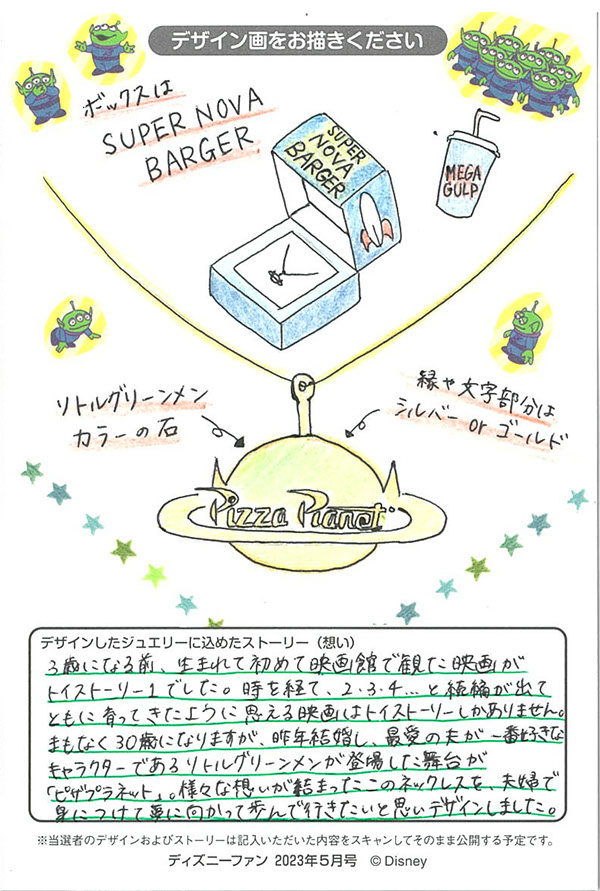 デザイン画をお描きください
ボックスは
SUPER NOVA
BARGER
SUPER
NOVA
BARGER
MEGA
GULP
リトルグリーンメン
カラーの石
縁や文字部分は
シルバー or ゴールド
Pizza Planet
デザインしたジュエリーに込めたストーリー（想い）
3歳になる前、生まれて初めて映画館で観た映画が
トイストーリー1でした。時を経て、2・3・4…と続編が出て
ともに育ってきたように思える映画はトイストーリーしかありません。
まもなく30歳になりますが、昨年結婚し、最愛の夫が一番好きな
キャラクターであるリトルグリーンメンが登場した舞台が
「ピザプラネット」。様々な想いが詰まったこのネックレスを、夫婦で
身につけて夢に向かって歩んで行きたいと思いデザインしました。
※当選者のデザインおよびストーリーは記入いただいた内容をスキャンしてそのまま公開する予定です。
ディズニーファン 2023年5月号 ©Disney